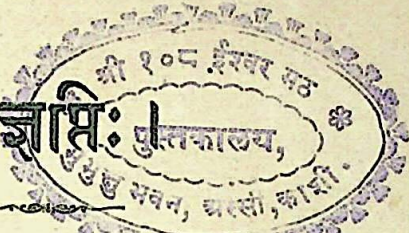 श्री १०८ ईश्वर मठ
ज्ञप्तिः ।
पुस्तकालय,
मुमुक्षु भवन, अस्सी, काशी.